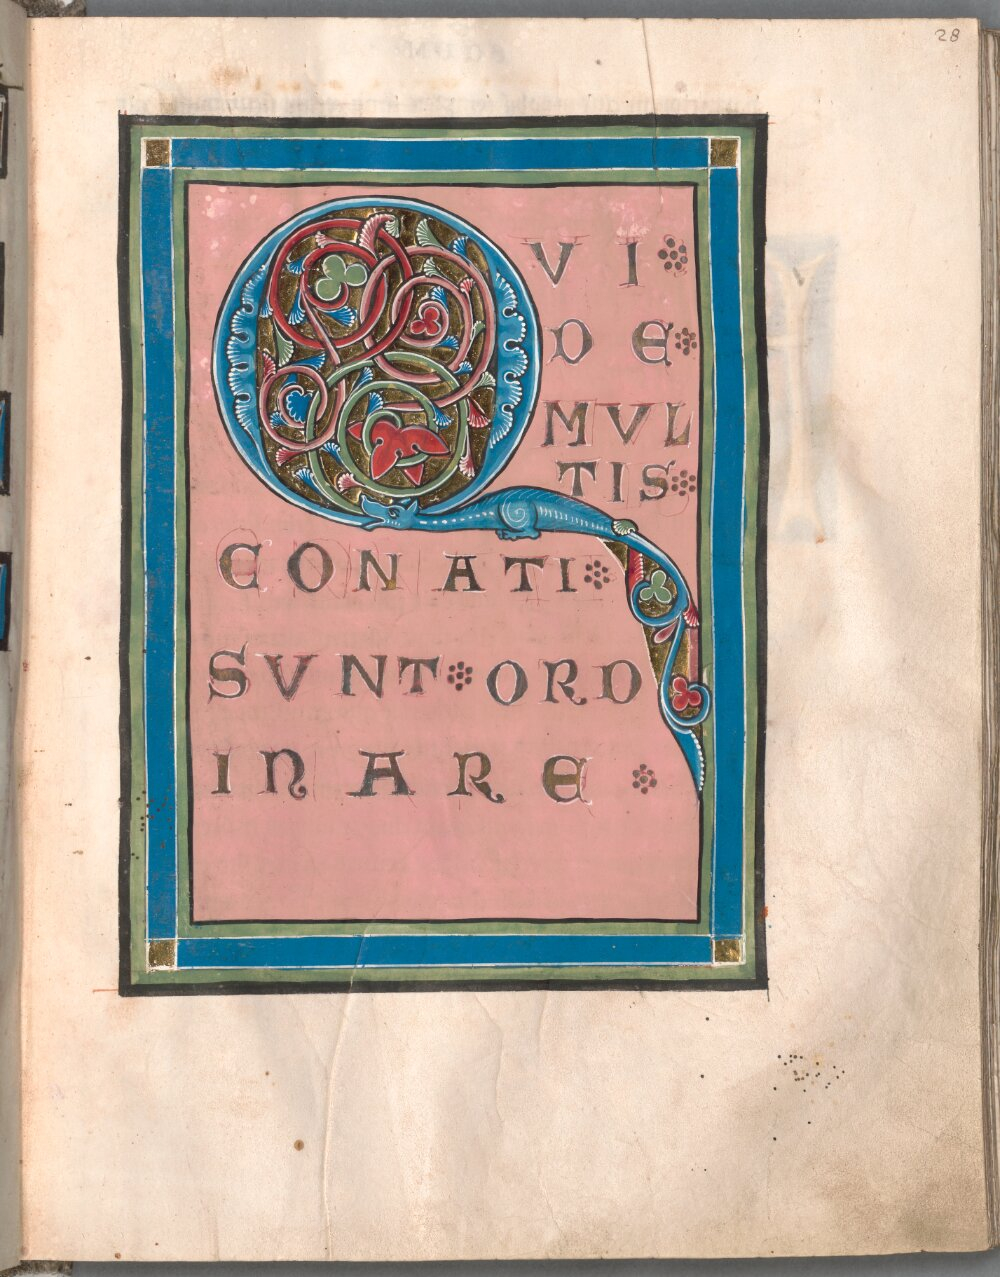 28
QVI
DE
MVL
TIS
CONATI
SVNT ORD
INARE